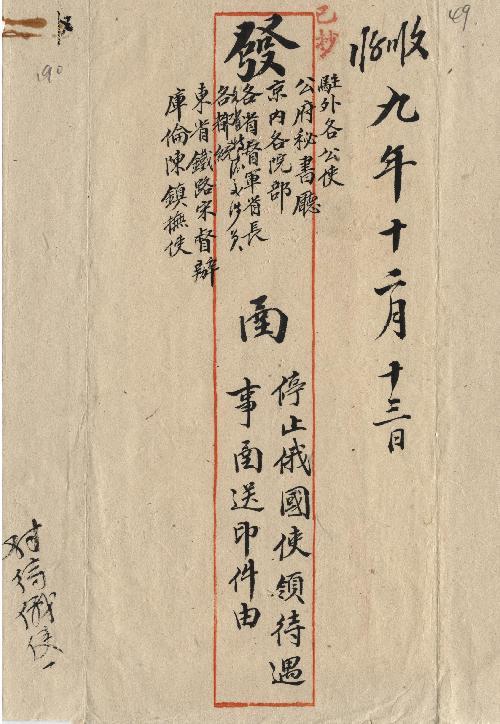 49
收
九年十二月十三日
已抄
發
駐外各公使
公府秘書廳
京内各院部
各省督軍省長
各省特派交涉員
各都統
東省鐵路宋督辦
庫倫陳鎮撫使
函
停止俄國使領待遇
事函送印件由
190
待俄使一